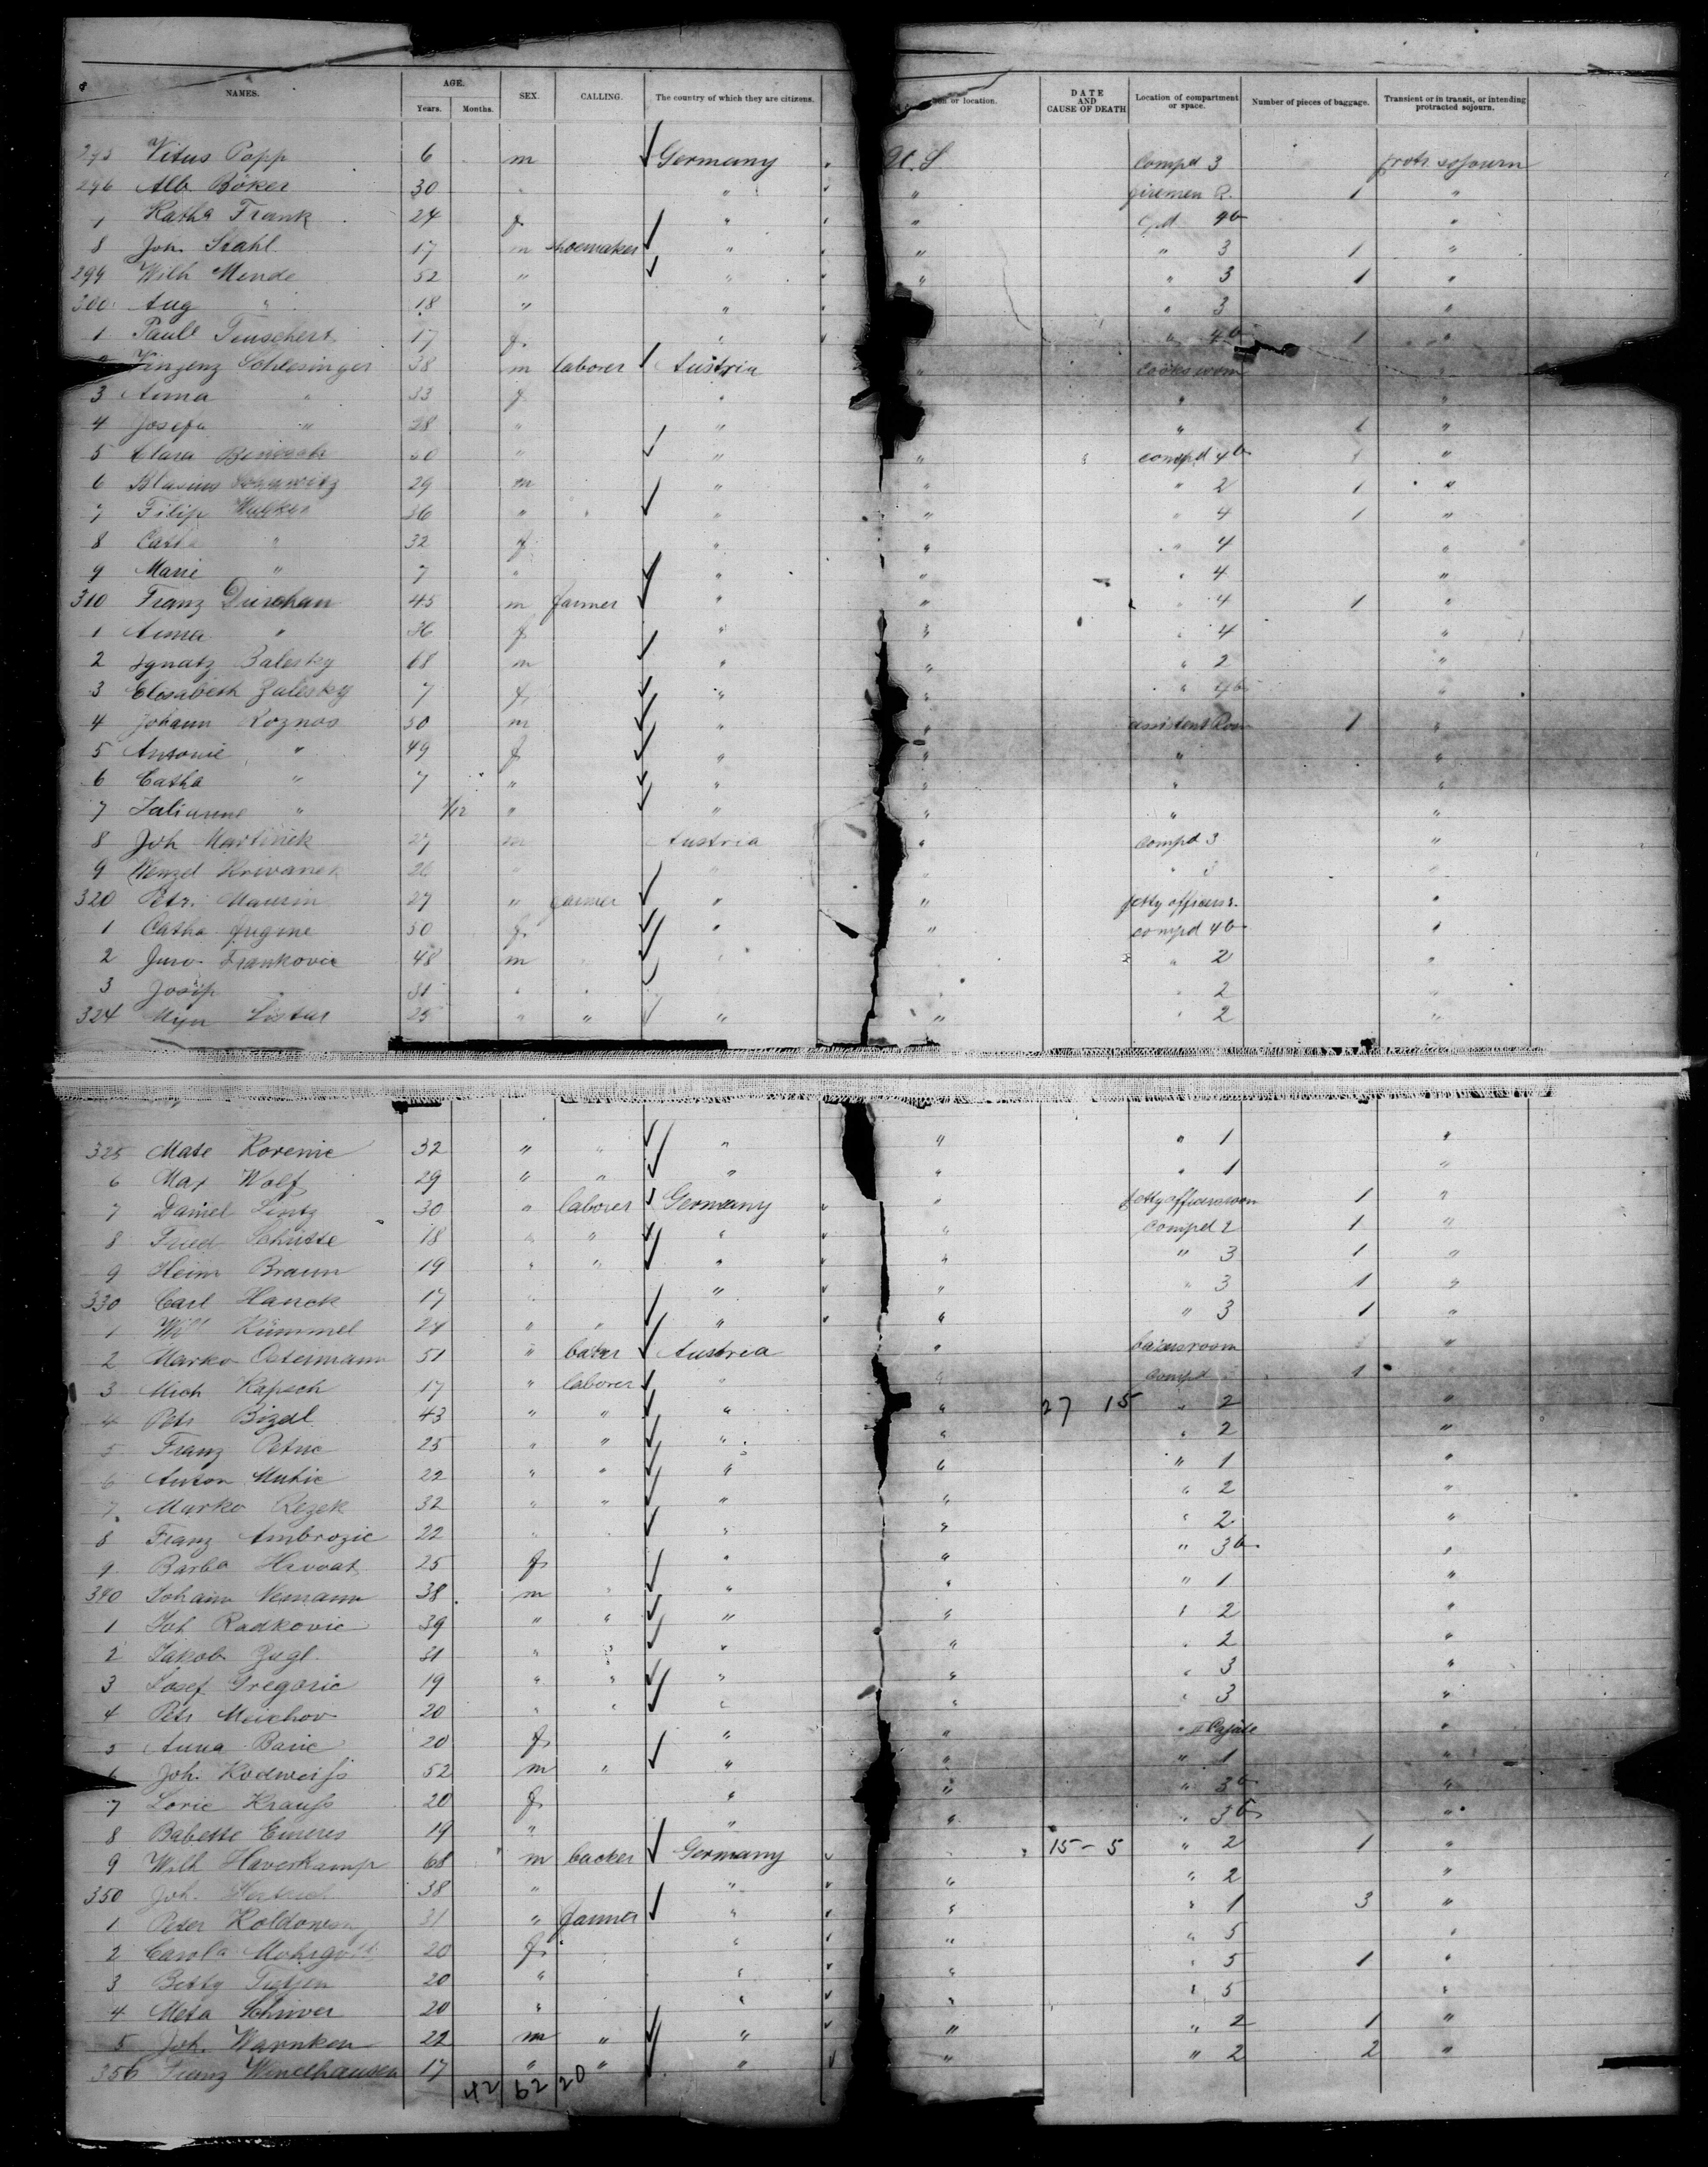 NAMES. AGE. Years. Months. SEX. CALLING. The country of which they are citizens. or location. DATE AND CAUSE OF DEATH Location of compartment or space. Number of pieces of baggage. Transient or in transit, or intending protracted sojourn.
295 Vitus Popp 6 m Germany U. S compd 3 protr sojourn
296 Alb Böker 30 " " " firemen R. 1 "
7 Katha Frank 24 f " " cpd 4b "
8 Joh. Stahl 17 m shoemaker " " " 3 1 "
299 Wilh Mende 52 " " " " 3 1 "
300 Aug " 18 " " " 3 "
1 Paul Teuschert 17 f " " 4b 1 "
Vinzenz Schlesinger 38 m laborer Austria " cooks room "
3 Anna " 33 f " " "
4 Josefa " 28 " " " 1 "
5 Clara 30 " " " compd 4b 1 "
6 Blasius 29 m " " " 2 1 "
7 Filip 36 " " " " 4 1 "
8 Catha " 32 f " " " 4 "
9 Marie " 7 " " " " 4 "
310 Franz 45 m farmer " " " 4 1 "
1 Anna " 36 f " " " 4 "
2 Ignatz Zalesky 68 m " " " 2 "
3 Elisabeth Zalesky 7 f " " " 4b "
4 Johann Koznas 50 m " " assistent Room 1 "
5 Antonie " 49 f " " " "
6 Catha " 7 " " " " "
7 Julianne " /12 " " " " "
8 Joh Martinek 27 m Austria " compd 3 "
9 Wenzel Krivanek 26 " " " " 3 "
320 Petr. Maurin 27 " farmer " " petty officers r. "
1 Catha Jugine 50 f " " compd 4b "
2 Juro Frankovic 48 m " " 2 "
3 Josip 31 " " " 2 "
324 Mijn Listar 25 " " " " " 2 "
325 Mate Korenic 32 " " " " " 1 "
6 Max Wolf 29 " " " " " 1 "
7 Daniel Lintz 30 " laborer Germany " petty officers room 1 "
8 Fried Schütte 18 " " " " compd 2 1 "
9 Heinr Braun 19 " " " " " 3 1 "
330 Carl Hanck 17 " " " " 3 1 "
1 Wilh Kümmel 24 " " " " " 3 1 "
2 Marko Ostermann 51 " baker Austria " bakers room "
3 Mich Kapsch 17 " laborer " " compd 1 "
4 Petr Bizal 43 " " " " 27 15 " 2 "
5 Franz Petric 25 " " " " " 2 "
6 Anton Mutic 22 " " " " " 1 "
7 Marko Rezek 32 " " " " " 2 "
8 Franz Ambrozic 22 " " " " 2 "
9 Barba Hrvoat 25 f " " " 3b "
340 Johann Nemann 38 m " " " " 1 "
1 Joh Radkovic 39 " " " " " 2 "
2 Jakob Zugl 31 " " " " " 2 "
3 Josef Gregoric 19 " " " " " 3 "
4 Petr 20 " " " " " 3 "
5 Anna Baric 20 f " " " II Cajüte "
6 Joh. Kodweiß 52 m " " " " 1 "
7 Lorie Krauß 20 f " " " 3b "
8 Babette 19 " " " " 3b "
9 Wilh Haverkamp 68 m backer Germany " 15-5 " 2 1 "
350 Joh. 38 " " " " 2 "
1 Peter 31 " farmer " " " 1 3 "
2 Carola 20 f " " " 5 "
3 Betty Tietjen 20 " " " " 5 1 "
4 Meta Schriver 20 " " " " 5 "
5 Joh. Warnken 22 m " " " " 2 1 "
356 Franz Winelhausen 17 " " " " " 2 2 "
42 62 20